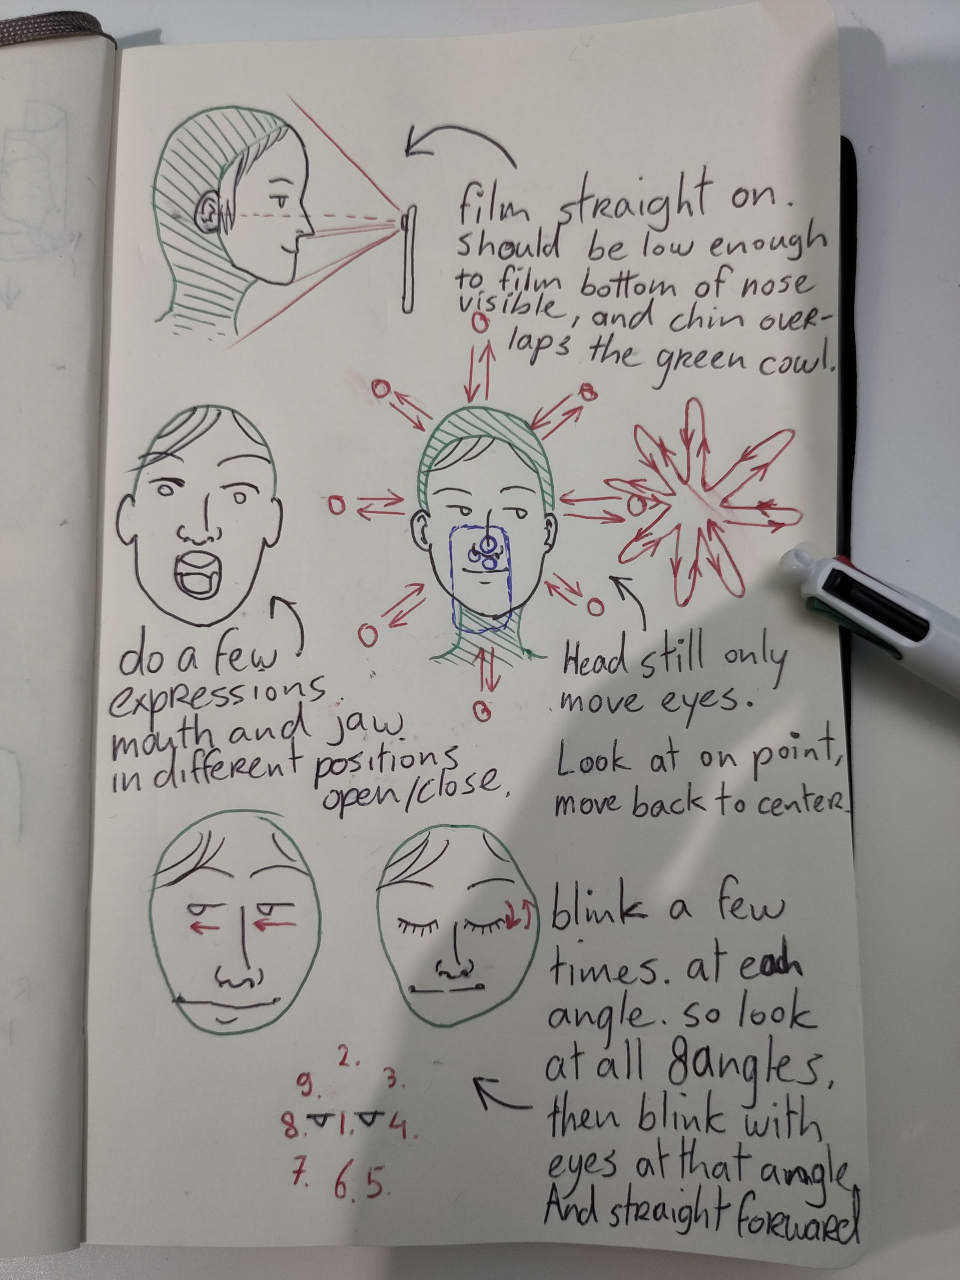 film straight on.
should be low enough
to film bottom of nose
visible, and chin over-
laps the green cowl.
do a few
expressions.
mouth and jaw
in different positions
open/close.
Head still only
move eyes.
Look at on point,
move back to center.
blink a few
times. at each
angle. so look
at all 8 angles,
then blink with
eyes at that angle.
And straight forward
2.
9. 3.
8. 1. 4.
7. 6. 5.